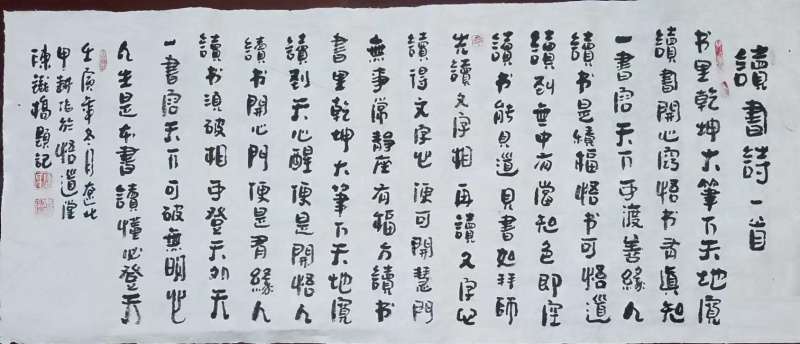 讀書詩一首
书里乾坤大筆下天地寬
讀書開心窍悟书有真知
一書窓天下手渡善緣人
讀书是續福悟书可悟道
讀到無中有當知色即空
讀书能見道見書如拜師
先讀文字相再讀文字心
讀得文字心便可開慧門
無事常靜座有福方讀书
書里乾坤大筆下天地寬
讀到天心醒便是開悟人
讀书開心門便是有緣人
讀书須破相手登天外天
一書窓天下可破無明心
人生是本書讀懂必登天
壬寅年冬月
甲耕作於悟道堂
陳 題記